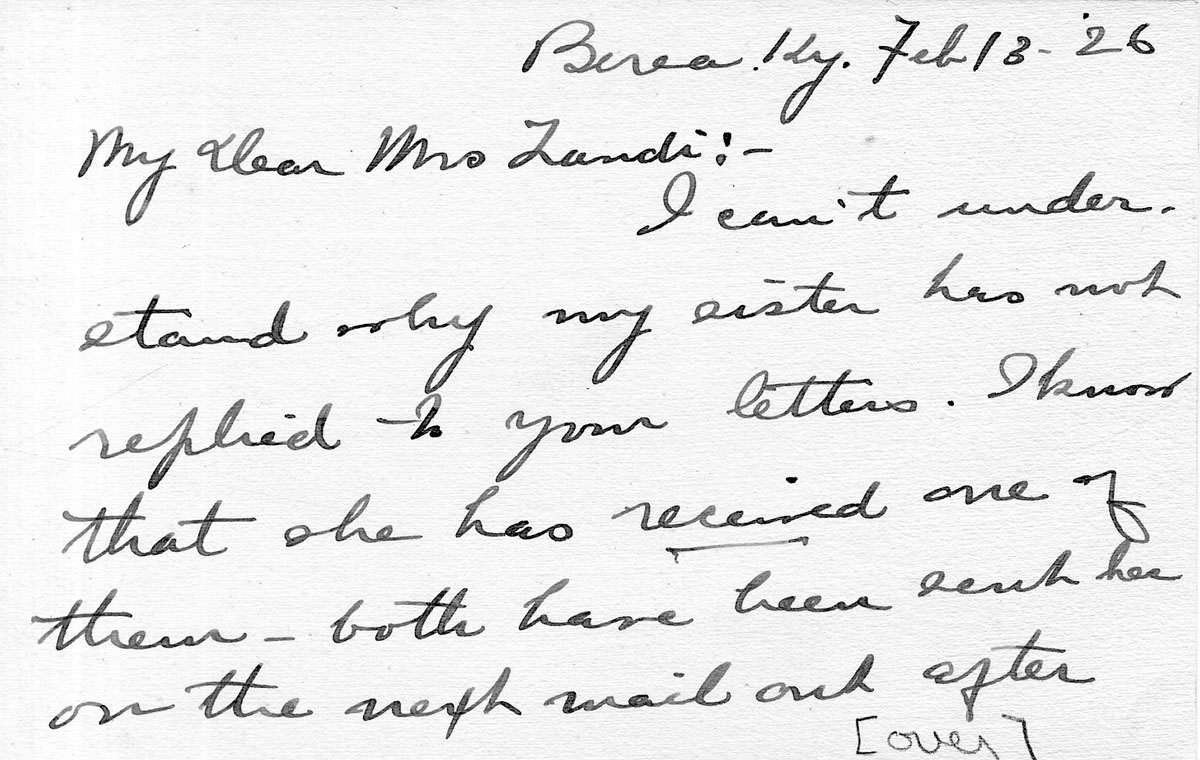 Berea. Ky. Feb 13 - '26
My Dear Mrs Landi:-
I can't under-
stand why my sister has not
replied to your letters. I know
that she has received one of
them - both have been sent her
on the next mail out after
[over]